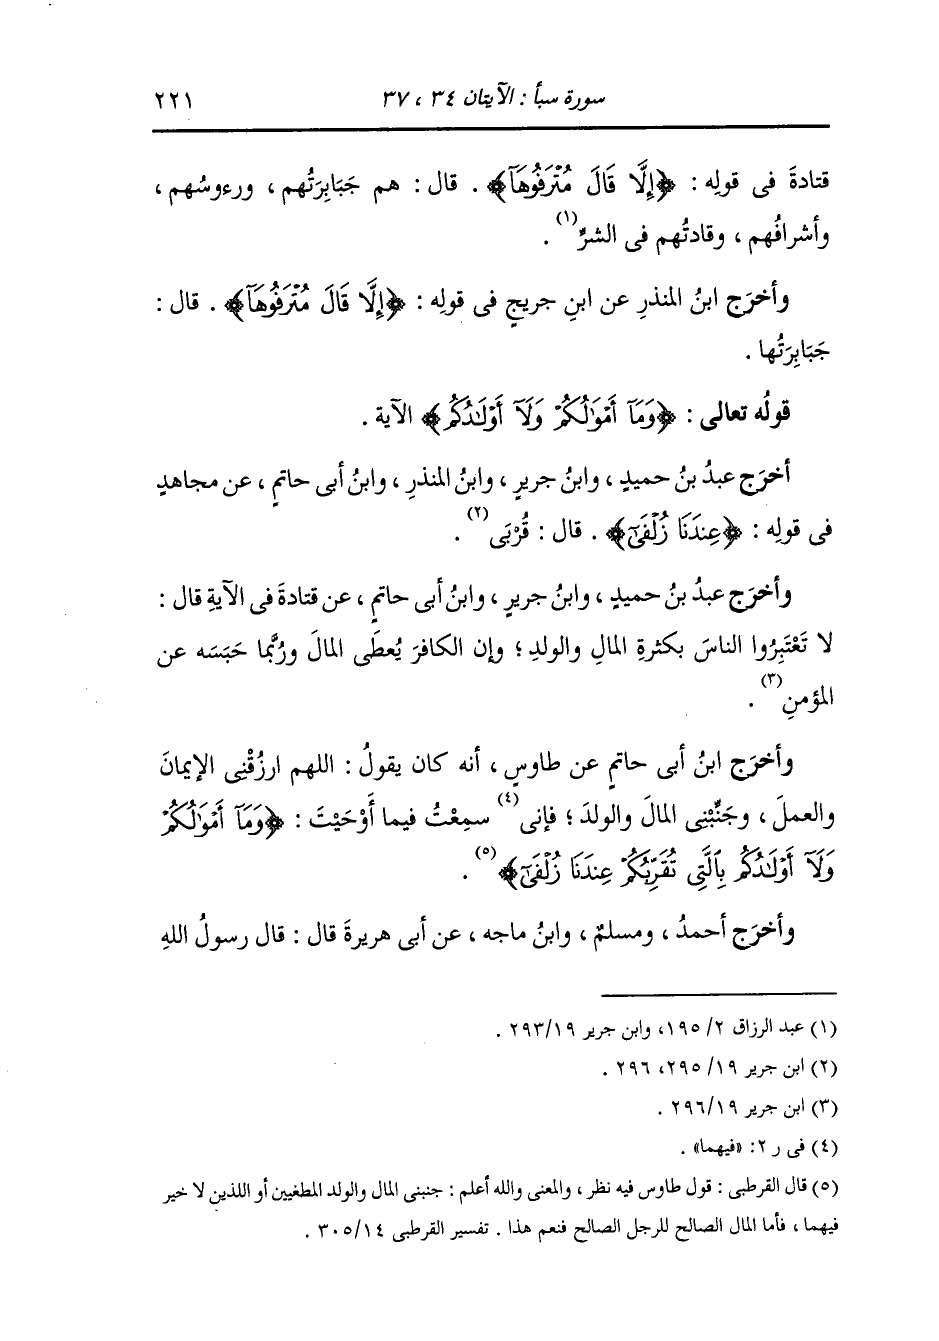 سورة سبأ : الآيتان ٣٤ ، ٣٧ ٢٢١
قتادةَ فى قولِه : ﴿إِلَّا قَالَ مُتْرَفُوهَآ﴾ . قال : هم جَبَابِرَتُهم ، ورءوسُهم ،
وأشرافُهم ، وقادتُهم فى الشرِّ(١) .
وأخرَج ابنُ المنذرِ عن ابنِ جريجٍ فى قولِه : ﴿إِلَّا قَالَ مُتْرَفُوهَآ﴾ . قال :
جَبَابِرَتُها .
قولُه تعالى : ﴿وَمَآ أَمْوَٰلُكُمْ وَلَآ أَوْلَٰدُكُم﴾ الآية .
أخرَج عبدُ بنُ حميدٍ ، وابنُ جريرٍ ، وابنُ المنذرِ ، وابنُ أبى حاتمٍ ، عن مجاهدٍ
فى قولِه : ﴿عِندَنَا زُلْفَىٰٓ﴾ . قال : قُرْبَى(٢) .
وأخرَج عبدُ بنُ حميدٍ ، وابنُ جريرٍ ، وابنُ أبى حاتمٍ ، عن قتادةَ فى الآيةِ قال :
لا تَعْتَبِرُوا الناسَ بكثرةِ المالِ والولدِ ؛ وإن الكافرَ يُعطَى المالَ ورُبَّما حَبَسَه عن
المؤمنِ(٣) .
وأخرَج ابنُ أبى حاتمٍ عن طاوسٍ ، أنه كان يقولُ : اللهم ارزُقْنِى الإيمانَ
والعملَ ، وجَنِّبْنِى المالَ والولدَ ؛ فإنى(٤) سمِعْتُ فيما أَوْحَيْتَ : ﴿وَمَآ أَمْوَٰلُكُمْ
وَلَآ أَوْلَٰدُكُم بِٱلَّتِى تُقَرِّبُكُمْ عِندَنَا زُلْفَىٰٓ﴾(٥) .
وأخرَج أحمدُ ، ومسلمٌ ، وابنُ ماجه ، عن أبى هريرةَ قال : قال رسولُ اللهِ
(١) عبد الرزاق ٢/ ١٩٥، وابن جرير ١٩/ ٢٩٣ .
(٢) ابن جرير ١٩/ ٢٩٥، ٢٩٦ .
(٣) ابن جرير ١٩/ ٢٩٦ .
(٤) فى ر ٢: «فيهما» .
(٥) قال القرطبى : قول طاوس فيه نظر ، والمعنى والله أعلم : جنبنى المال والولد المطغيين أو اللذين لا خير
فيهما ، فأما المال الصالح للرجل الصالح فنعم هذا . تفسير القرطبى ١٤/ ٣٠٥ .